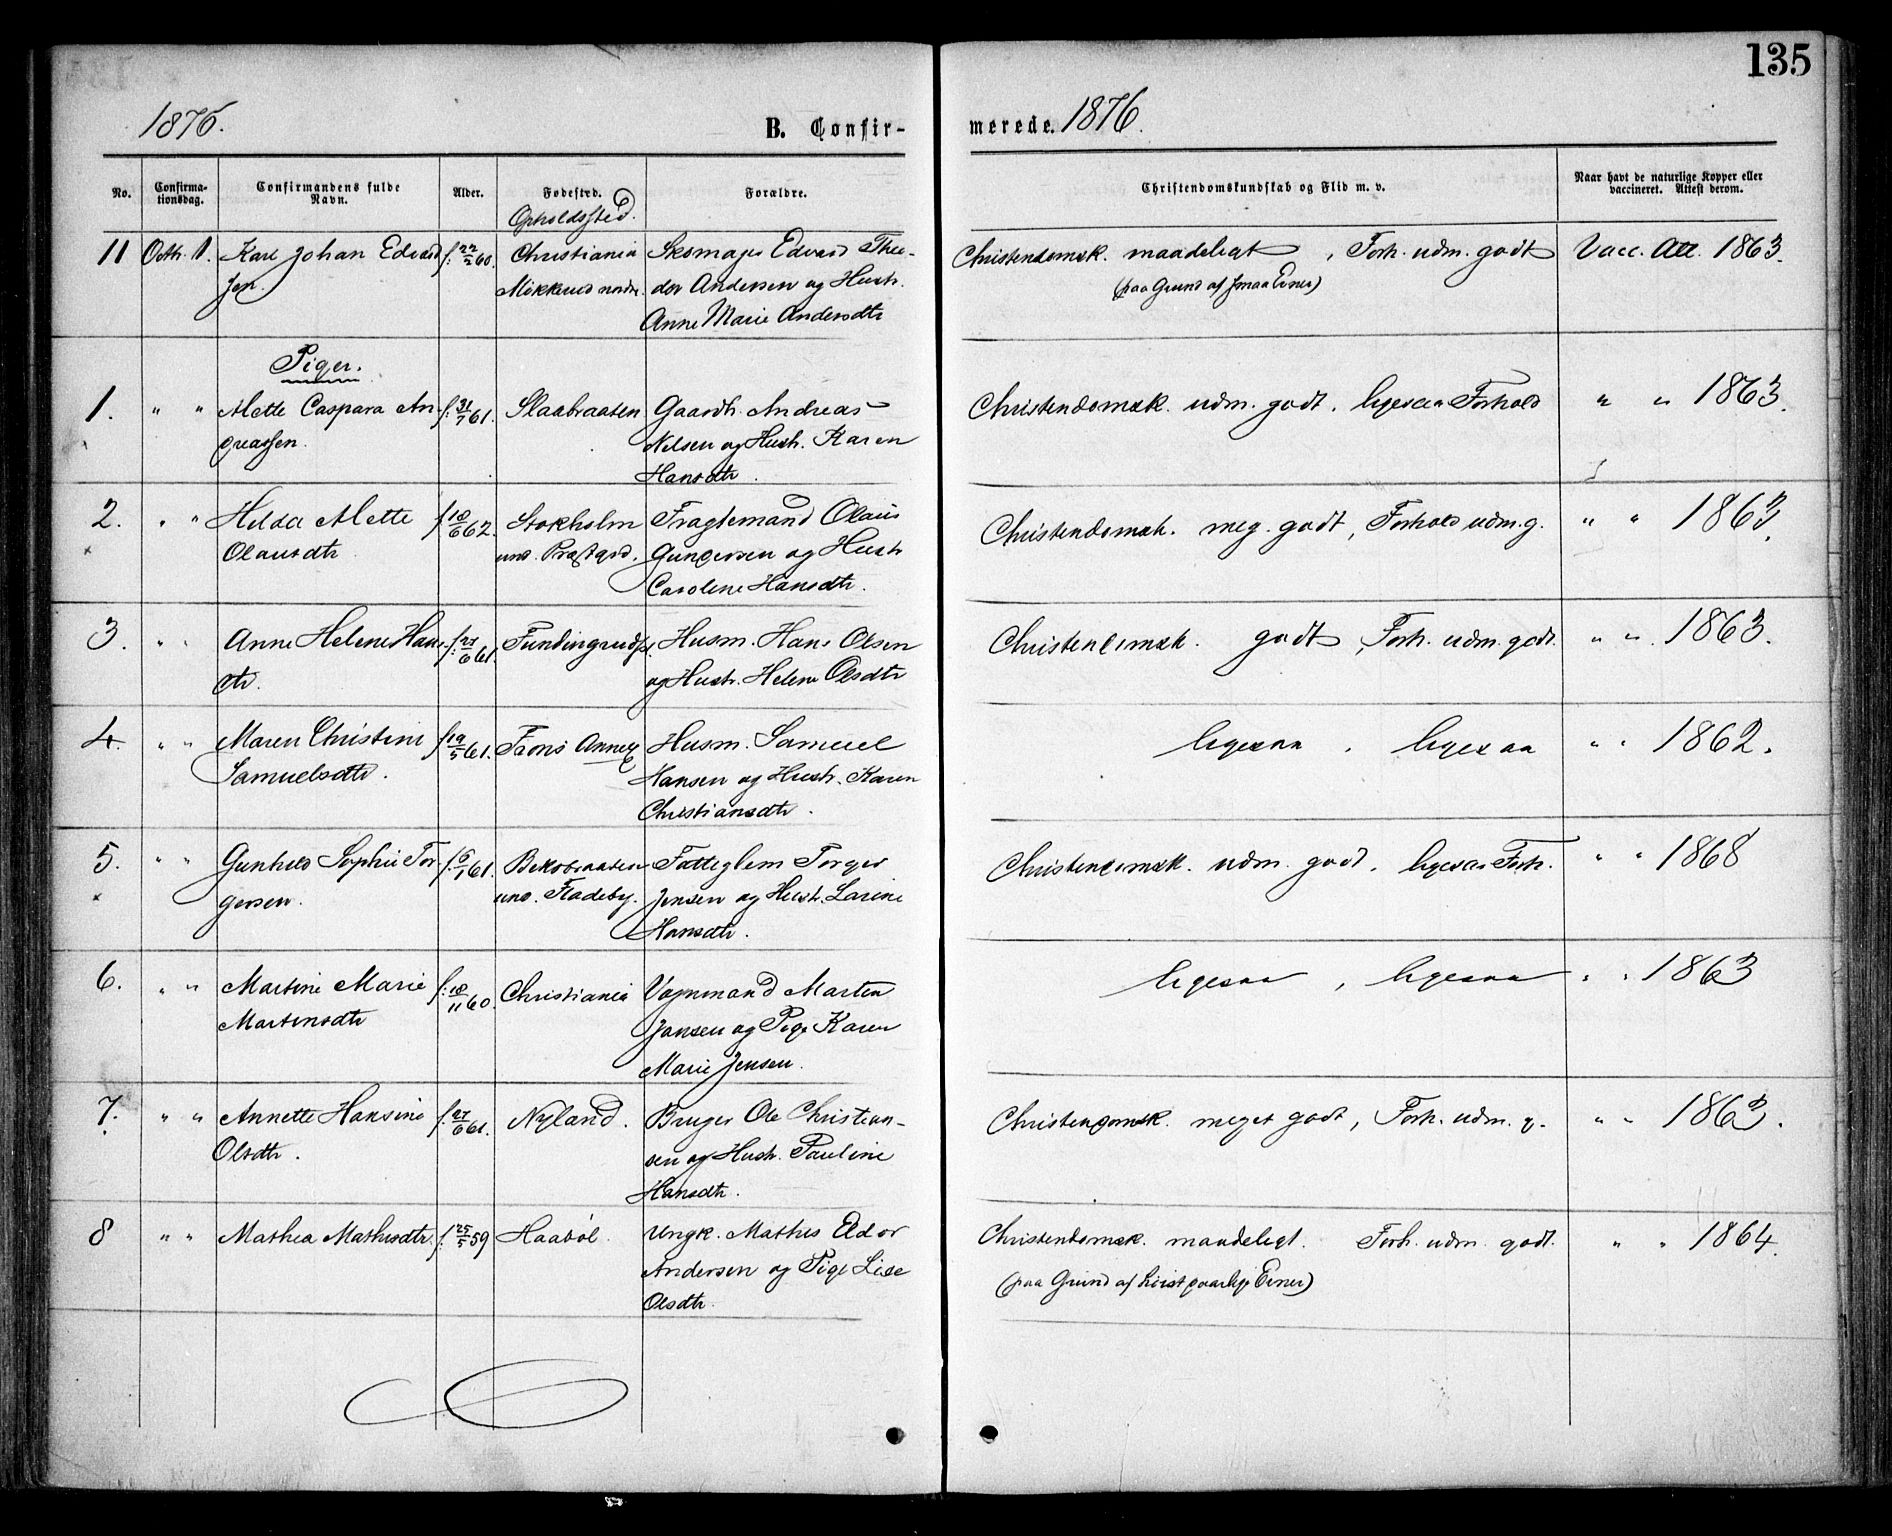 135
1876.
B. Confir-
merede. 1876.
No.
Confirma-
tionsdag.
Confirmandens fulde
Navn.
Alder.
Fødested.
Opholdssted.
Forældre.
Christendomskundskab og Flid m. v.
Naar havt de naturlige Kopper eller
vaccineret. Attest derom.
11 Octb. 1. Karl Johan Edvard f. 22/2 60. Christiania Skomager Edvard Theo- Christendomsk. maadeligt, Forh. udm. godt Vacc. Att. 1863.
Mikkerud nordr. dor Andersen og Hustr. (paa Grund af smaa Evner)
Anne Marie Andersdtr
Piger.
1. " " Mette Caspara An- f. 31/7 61. Slaabraaten Gaardb. Andreas Christendomsk. udm. godt. ligesaa Forhold " " 1863.
dreassen. Nilsen og Hustr. Karen
Hansdtr.
2. " " Hilda Mette f. 18/6 62. Stokholm Fragtemand Olaus Christendomsk. meg. godt, Forhold udm. g. " " 1863.
Olausdtr. und. Præstgrd. Gundersen og Hustr
Caroline Hansdtr.
3. " " Anne Helene Hans- f. 27/6 61. Fundingruds. Husm. Hans Olsen Christendomsk. godt, Forh. udm. godt. " " 1863.
dtr. og Hustr. Helene Olsdtr
4. " " Maren Christine f. 19/5 61. Frons Annex Husm. Samuel ligesaa, ligesaa " " 1862.
Samuelsdtr. Hansen og Hustr. Karen
Christiansdtr.
5. " " Gunhild Sophie Tor- f. 6/1 61. Bekobraaten Fatteglem Torger Christendomsk. udm. godt. ligesaa Forh. " " 1868
gersen. und. Fladeby. Jensen og Hustr. Larine
Hansdtr.
6. " " Martine Marie f. 18/11 60. Christiania Vognmand Marten ligesaa, ligesaa " " 1863
Martinsdtr Jansen og Pige Karen
Marie Jensen.
7. " " Annette Hansine f. 27/6 61. Nyland. Bruger Ole Christian- Christendomsk. meget godt, Forh. udm. g. " " 1863.
Olsdtr. sen og Hustr. Pauline
Hansdtr.
8 " " Mathea Mathisdtr. f. 25/5 59 Haabøl. Ungk. Mathis Edor Christendomsk. maadeligt. Forh. udm. godt. " " 1864.
Andersen og Pige Lise (paa Grund af Evner)
Olsdtr.